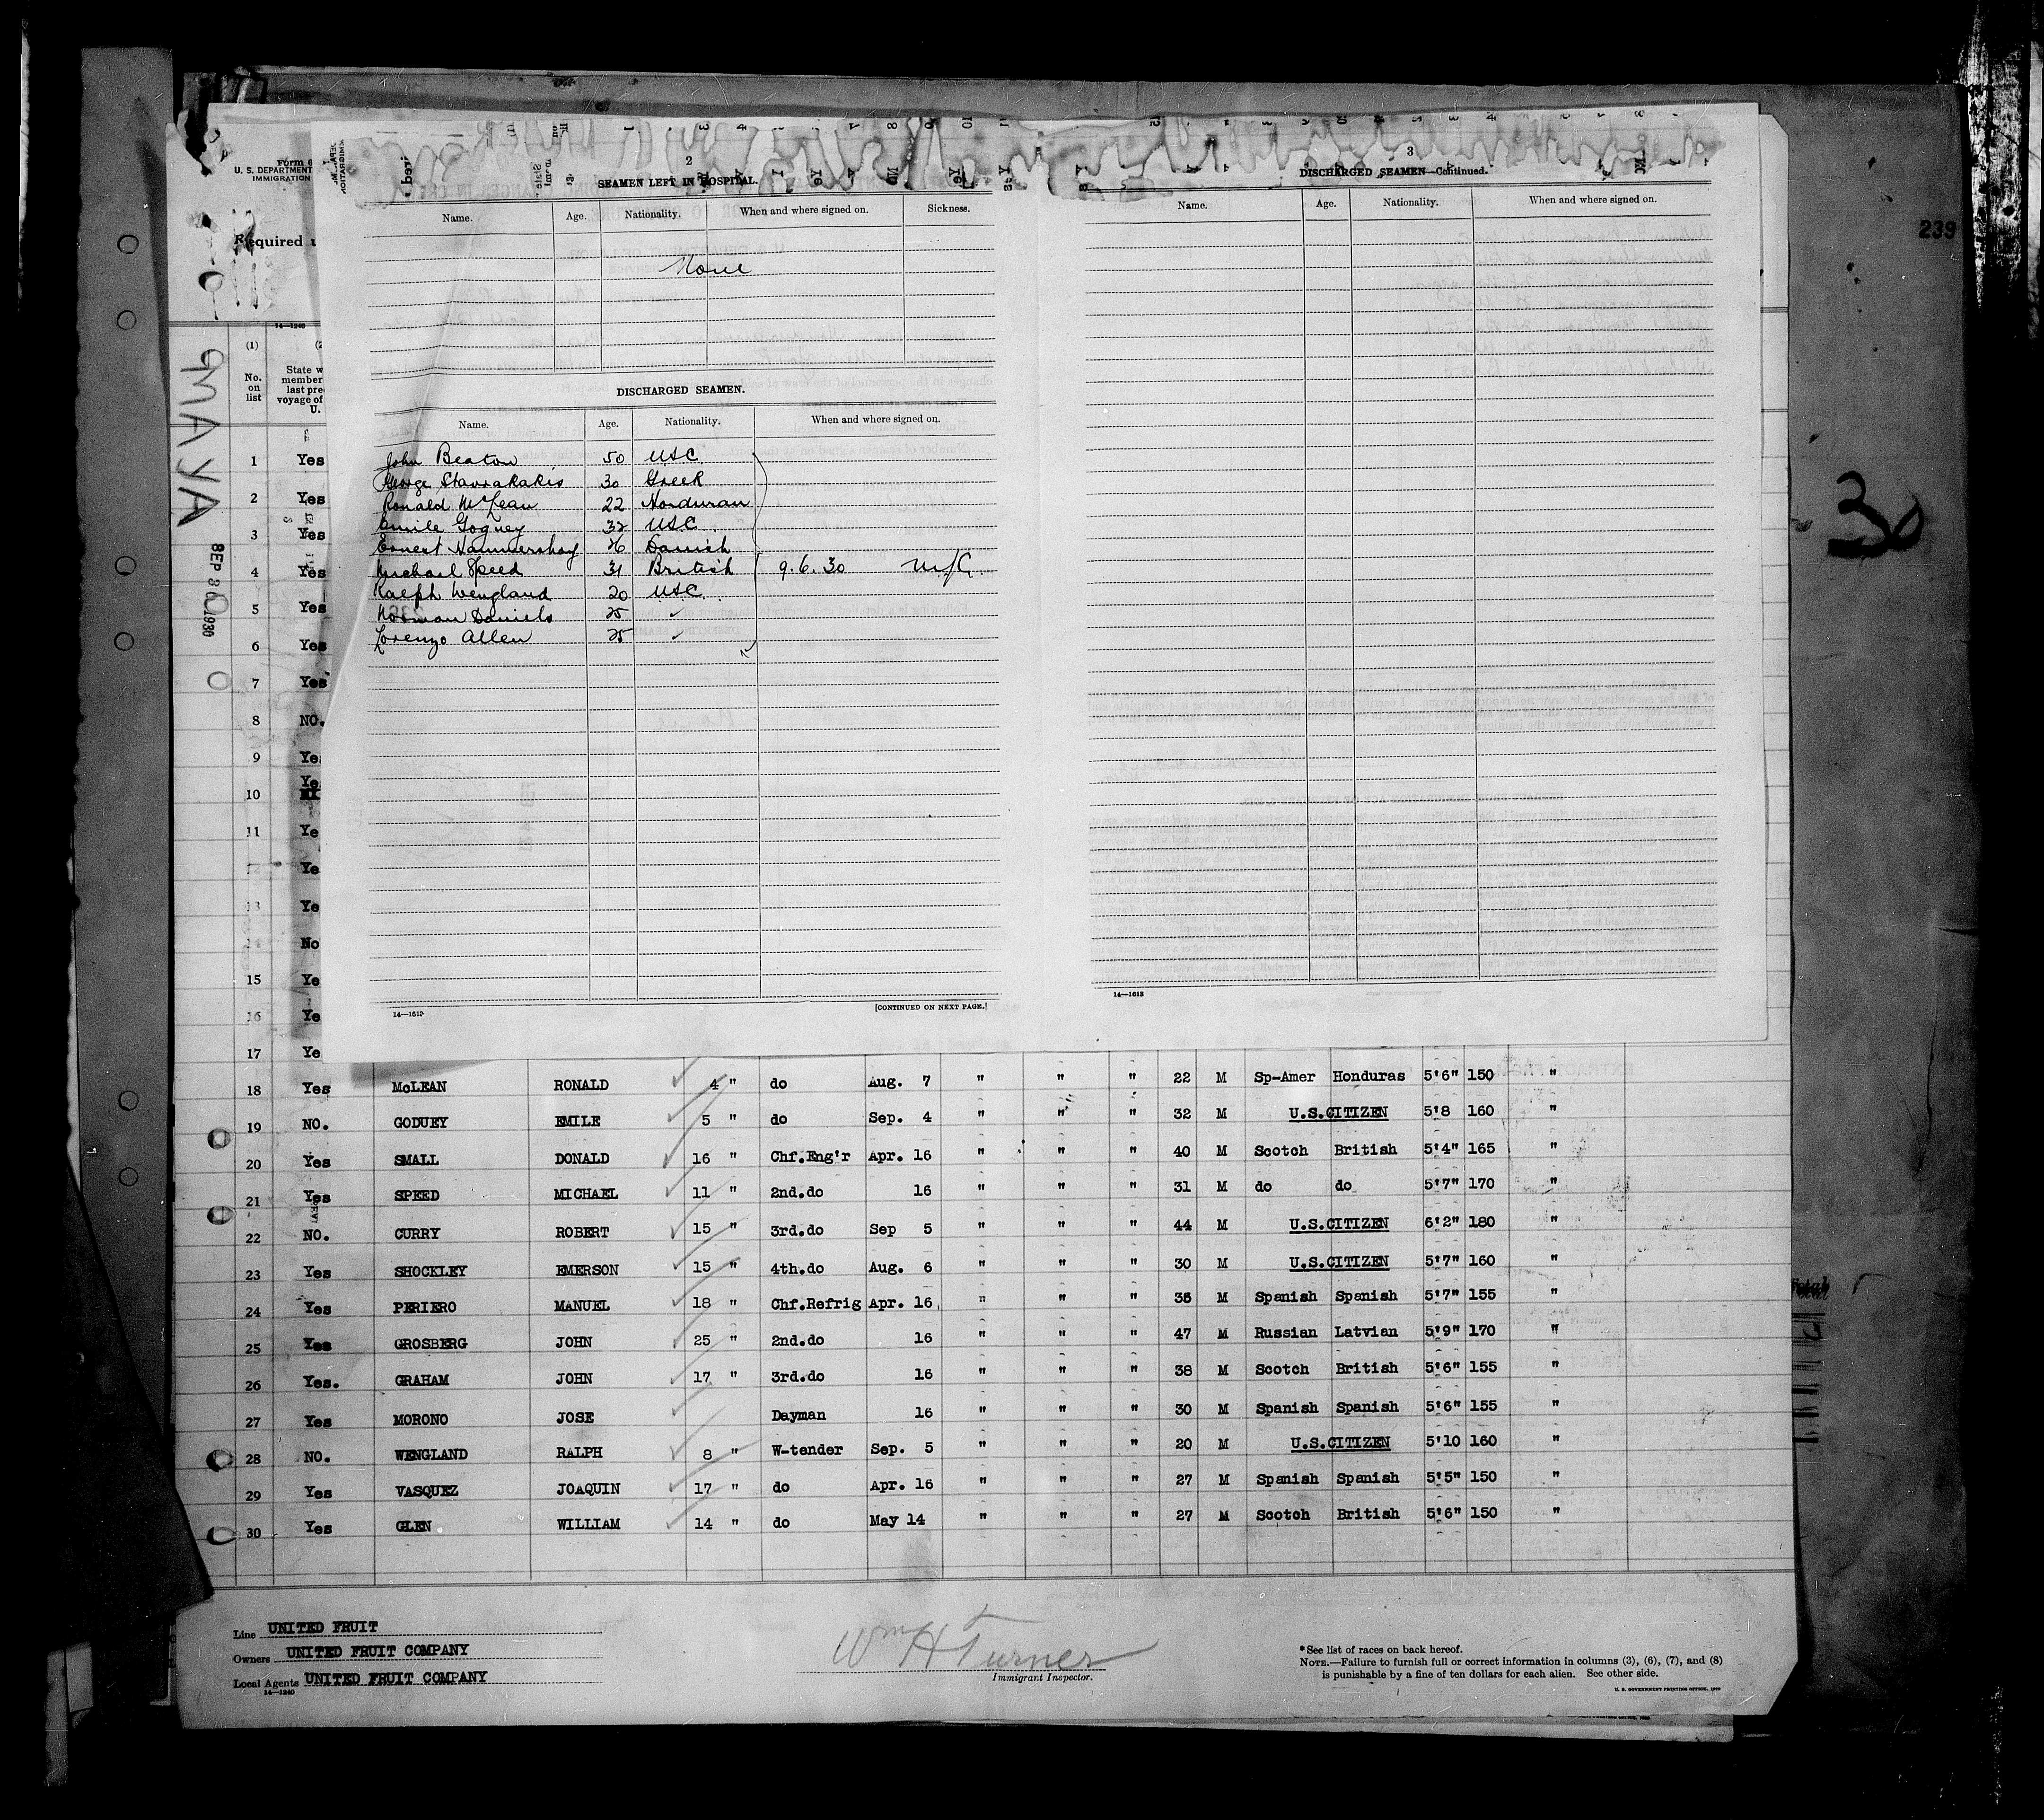 239
30
MAYA
SEP 8 1930
Form 6
U. S. DEPARTMENT
IMMIGRATION
Required u
14—1240
(1)
No.
on
list
State w
member
last pre
voyage of
U.
1 Yes
2 Yes
3 Yes
4 Yes
5 Yes
6 Yes
7 Yes
8 NO.
9 Ye
10 Ye
11 Ye
12 Ye
13 Ye
14 No
15 Ye
16 Ye
17 Ye
2
SEAMEN LEFT IN HOSPITAL.
Name. Age. Nationality. When and where signed on. Sickness.
None
DISCHARGED SEAMEN.
Name. Age. Nationality. When and where signed on.
John Beaton 50 USC
George Stavrakakis 30 Greek
Ronald McLean 22 Honduran
Emile Goguey 32 USC
Ernest Hammershoy 26 Danish
Michael Speed 31 British 9.6.30
Ralph Wengland 20 USC
Norman Daniels 25 ✓
Lorenzo Allen 25 ✓
14—1613
[CONTINUED ON NEXT PAGE.]
3
DISCHARGED SEAMEN—Continued.
Name. Age. Nationality. When and where signed on.
14—1613
18 Yes McLEAN RONALD 4 " do Aug. 7 " " " 22 M Sp-Amer Honduras 5'6" 150 "
19 NO. GODUEY EMILE 5 " do Sep. 4 " " " 32 M U.S.CITIZEN 5'8 160 "
20 Yes SMALL DONALD 16 " Chf.Eng'r Apr. 16 " " " 40 M Scotch British 5'4" 165 "
21 Yes SPEED MICHAEL 11 " 2nd.do 16 " " " 31 M do do 5'7" 170 "
22 NO. CURRY ROBERT 15 " 3rd.do Sep 5 " " " 44 M U.S.CITIZEN 6'2" 180 "
23 Yes SHOCKLEY EMERSON 15 " 4th.do Aug. 6 " " " 30 M U.S.CITIZEN 5'7" 160 "
24 Yes PERIERO MANUEL 18 " Chf.Refrig Apr. 16 " " " 35 M Spanish Spanish 5'7" 155 "
25 Yes GROSBERG JOHN 25 " 2nd.do 16 " " " 47 M Russian Latvian 5'9" 170 "
26 Yes. GRAHAM JOHN 17 " 3rd.do 16 " " " 38 M Scotch British 5'6" 155 "
27 Yes MORONO JOSE Dayman 16 " " " 30 M Spanish Spanish 5'6" 155 "
28 NO. WENGLAND RALPH 8 " W-tender Sep. 5 " " " 20 M U.S.CITIZEN 5'10 160 "
29 Yes VASQUEZ JOAQUIN 17 " do Apr. 16 " " " 27 M Spanish Spanish 5'5" 150 "
30 Yes GLEN WILLIAM 14 " do May 14 " " " 27 M Scotch British 5'6" 150 "
Line UNITED FRUIT
Owners UNITED FRUIT COMPANY
Local Agents UNITED FRUIT COMPANY
14—1240
Wm H Turner
Immigrant Inspector.
*See list of races on back hereof.
NOTE.—Failure to furnish full or correct information in columns (3), (6), (7), and (8)
is punishable by a fine of ten dollars for each alien. See other side.
U. S. GOVERNMENT PRINTING OFFICE